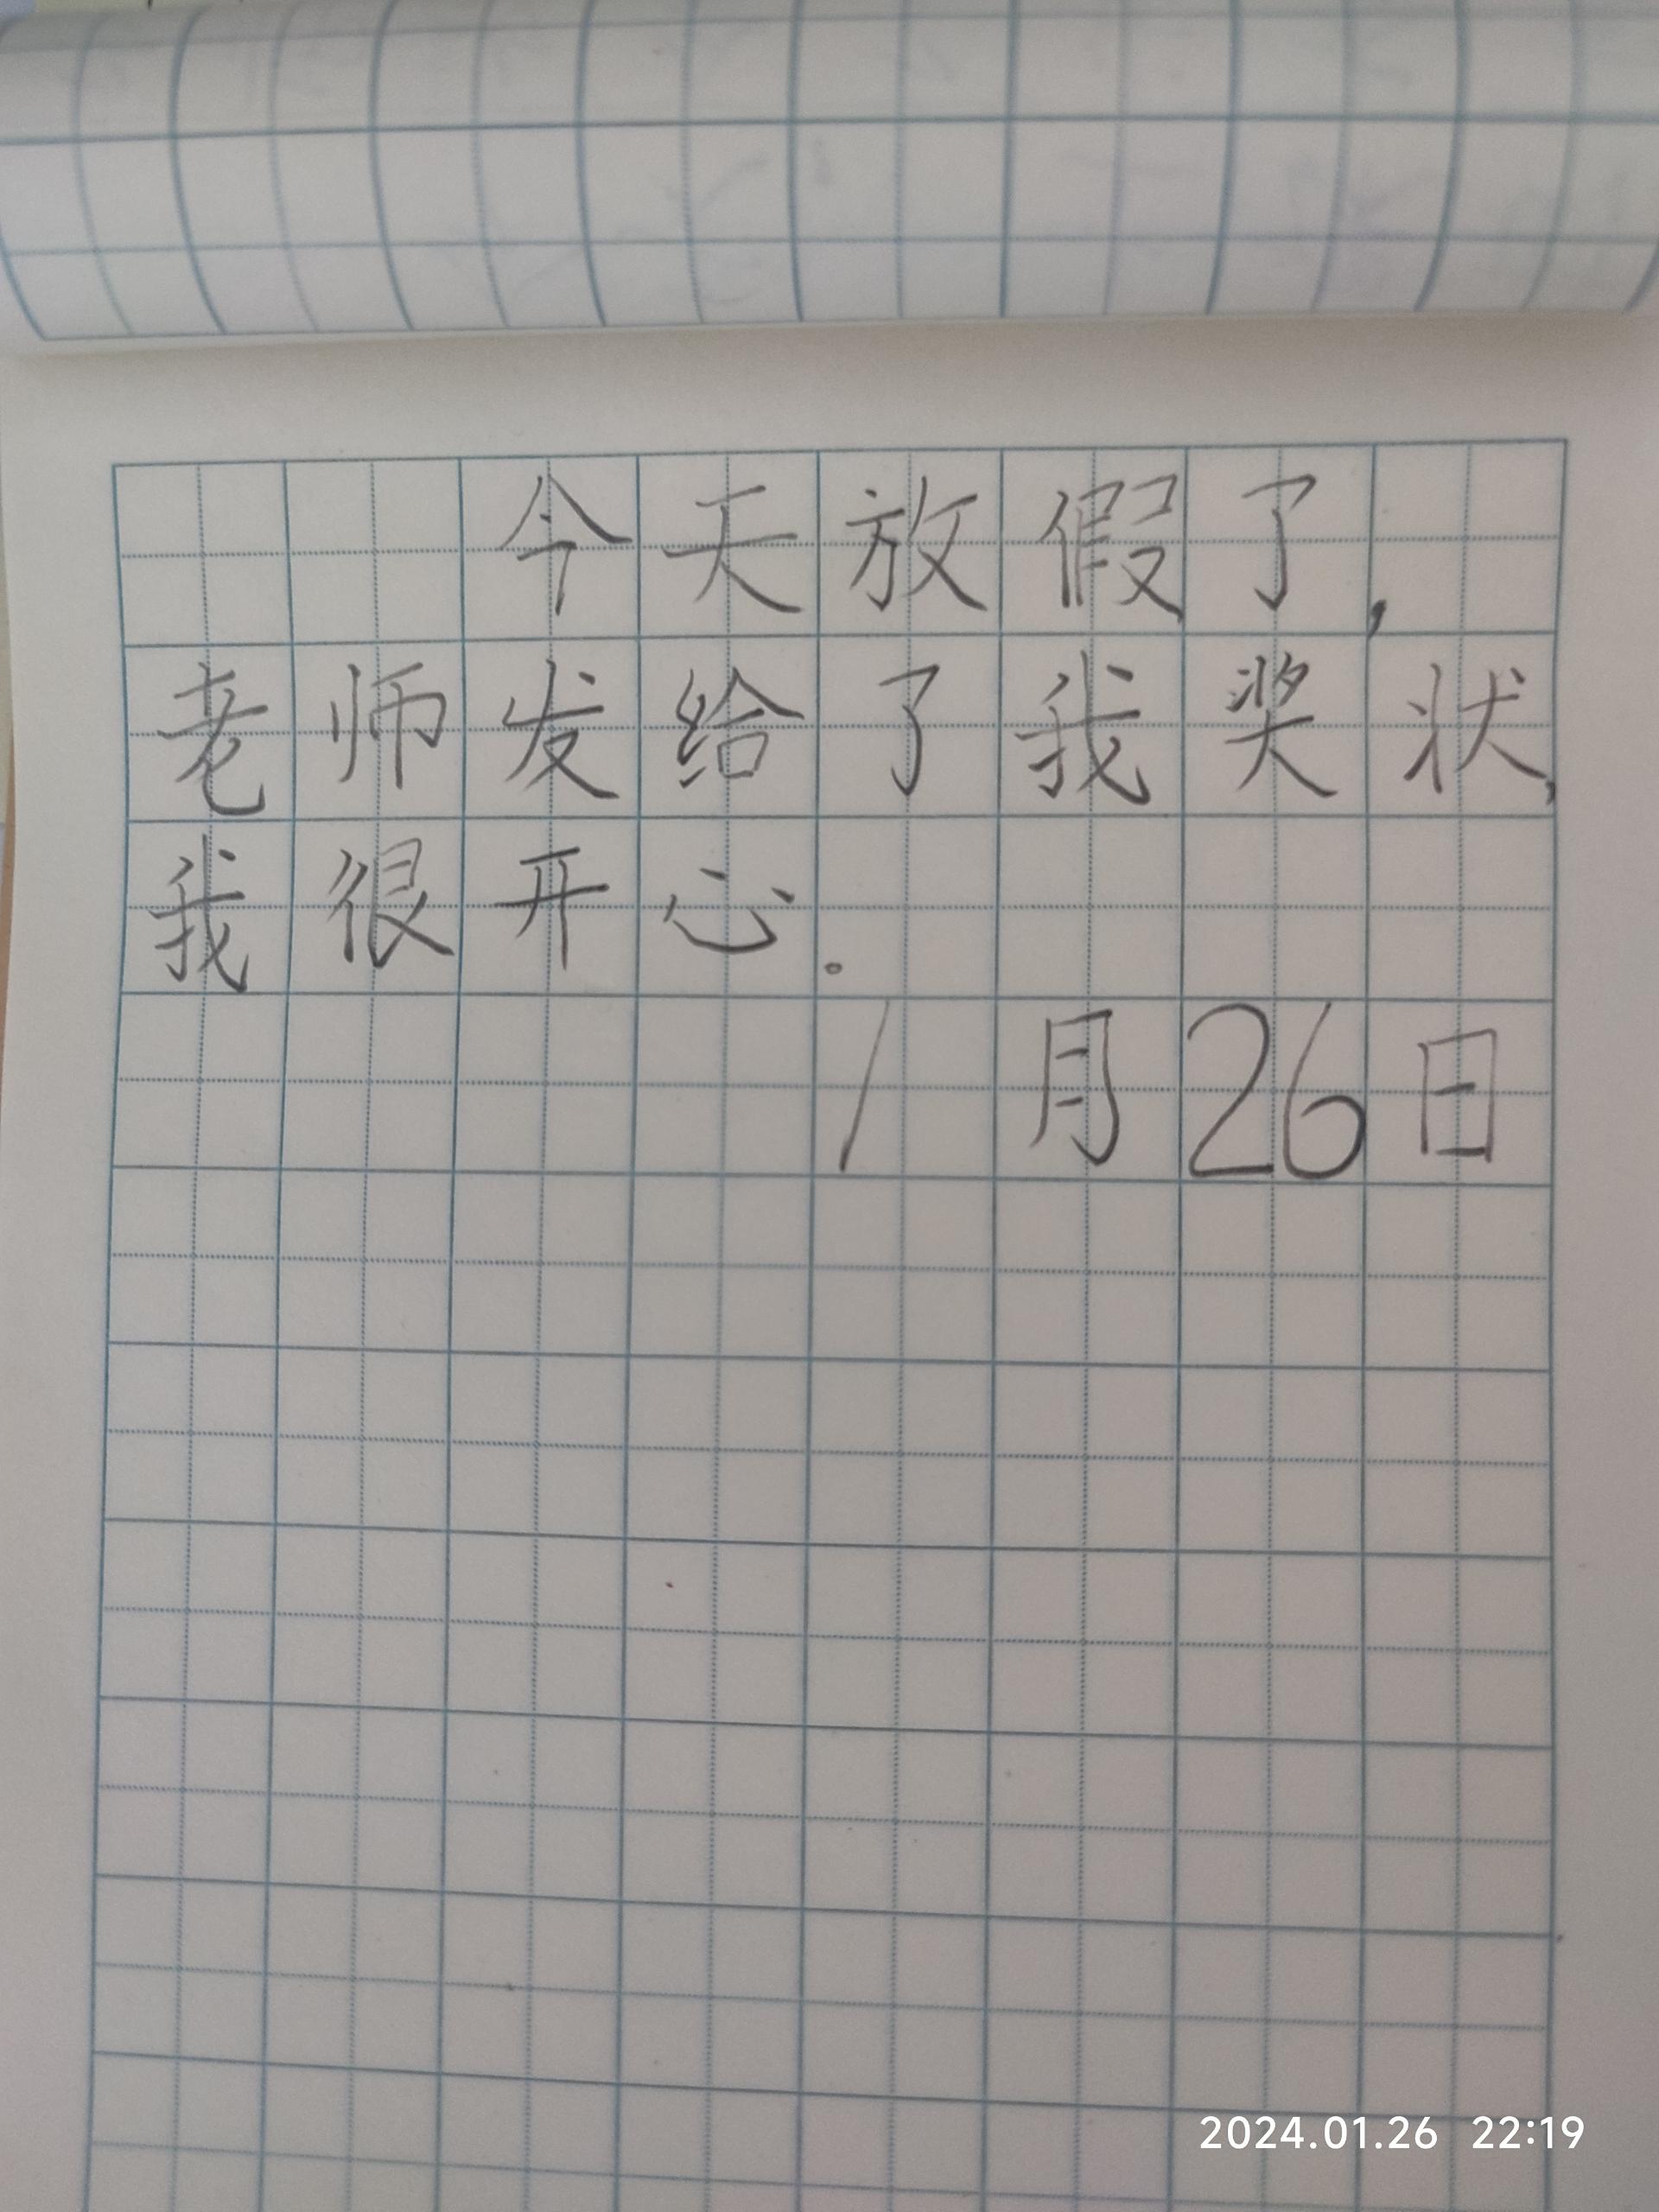 今天放假了，
老师发给了我奖状，
我很开心。
1月26日
2024.01.26 22:19